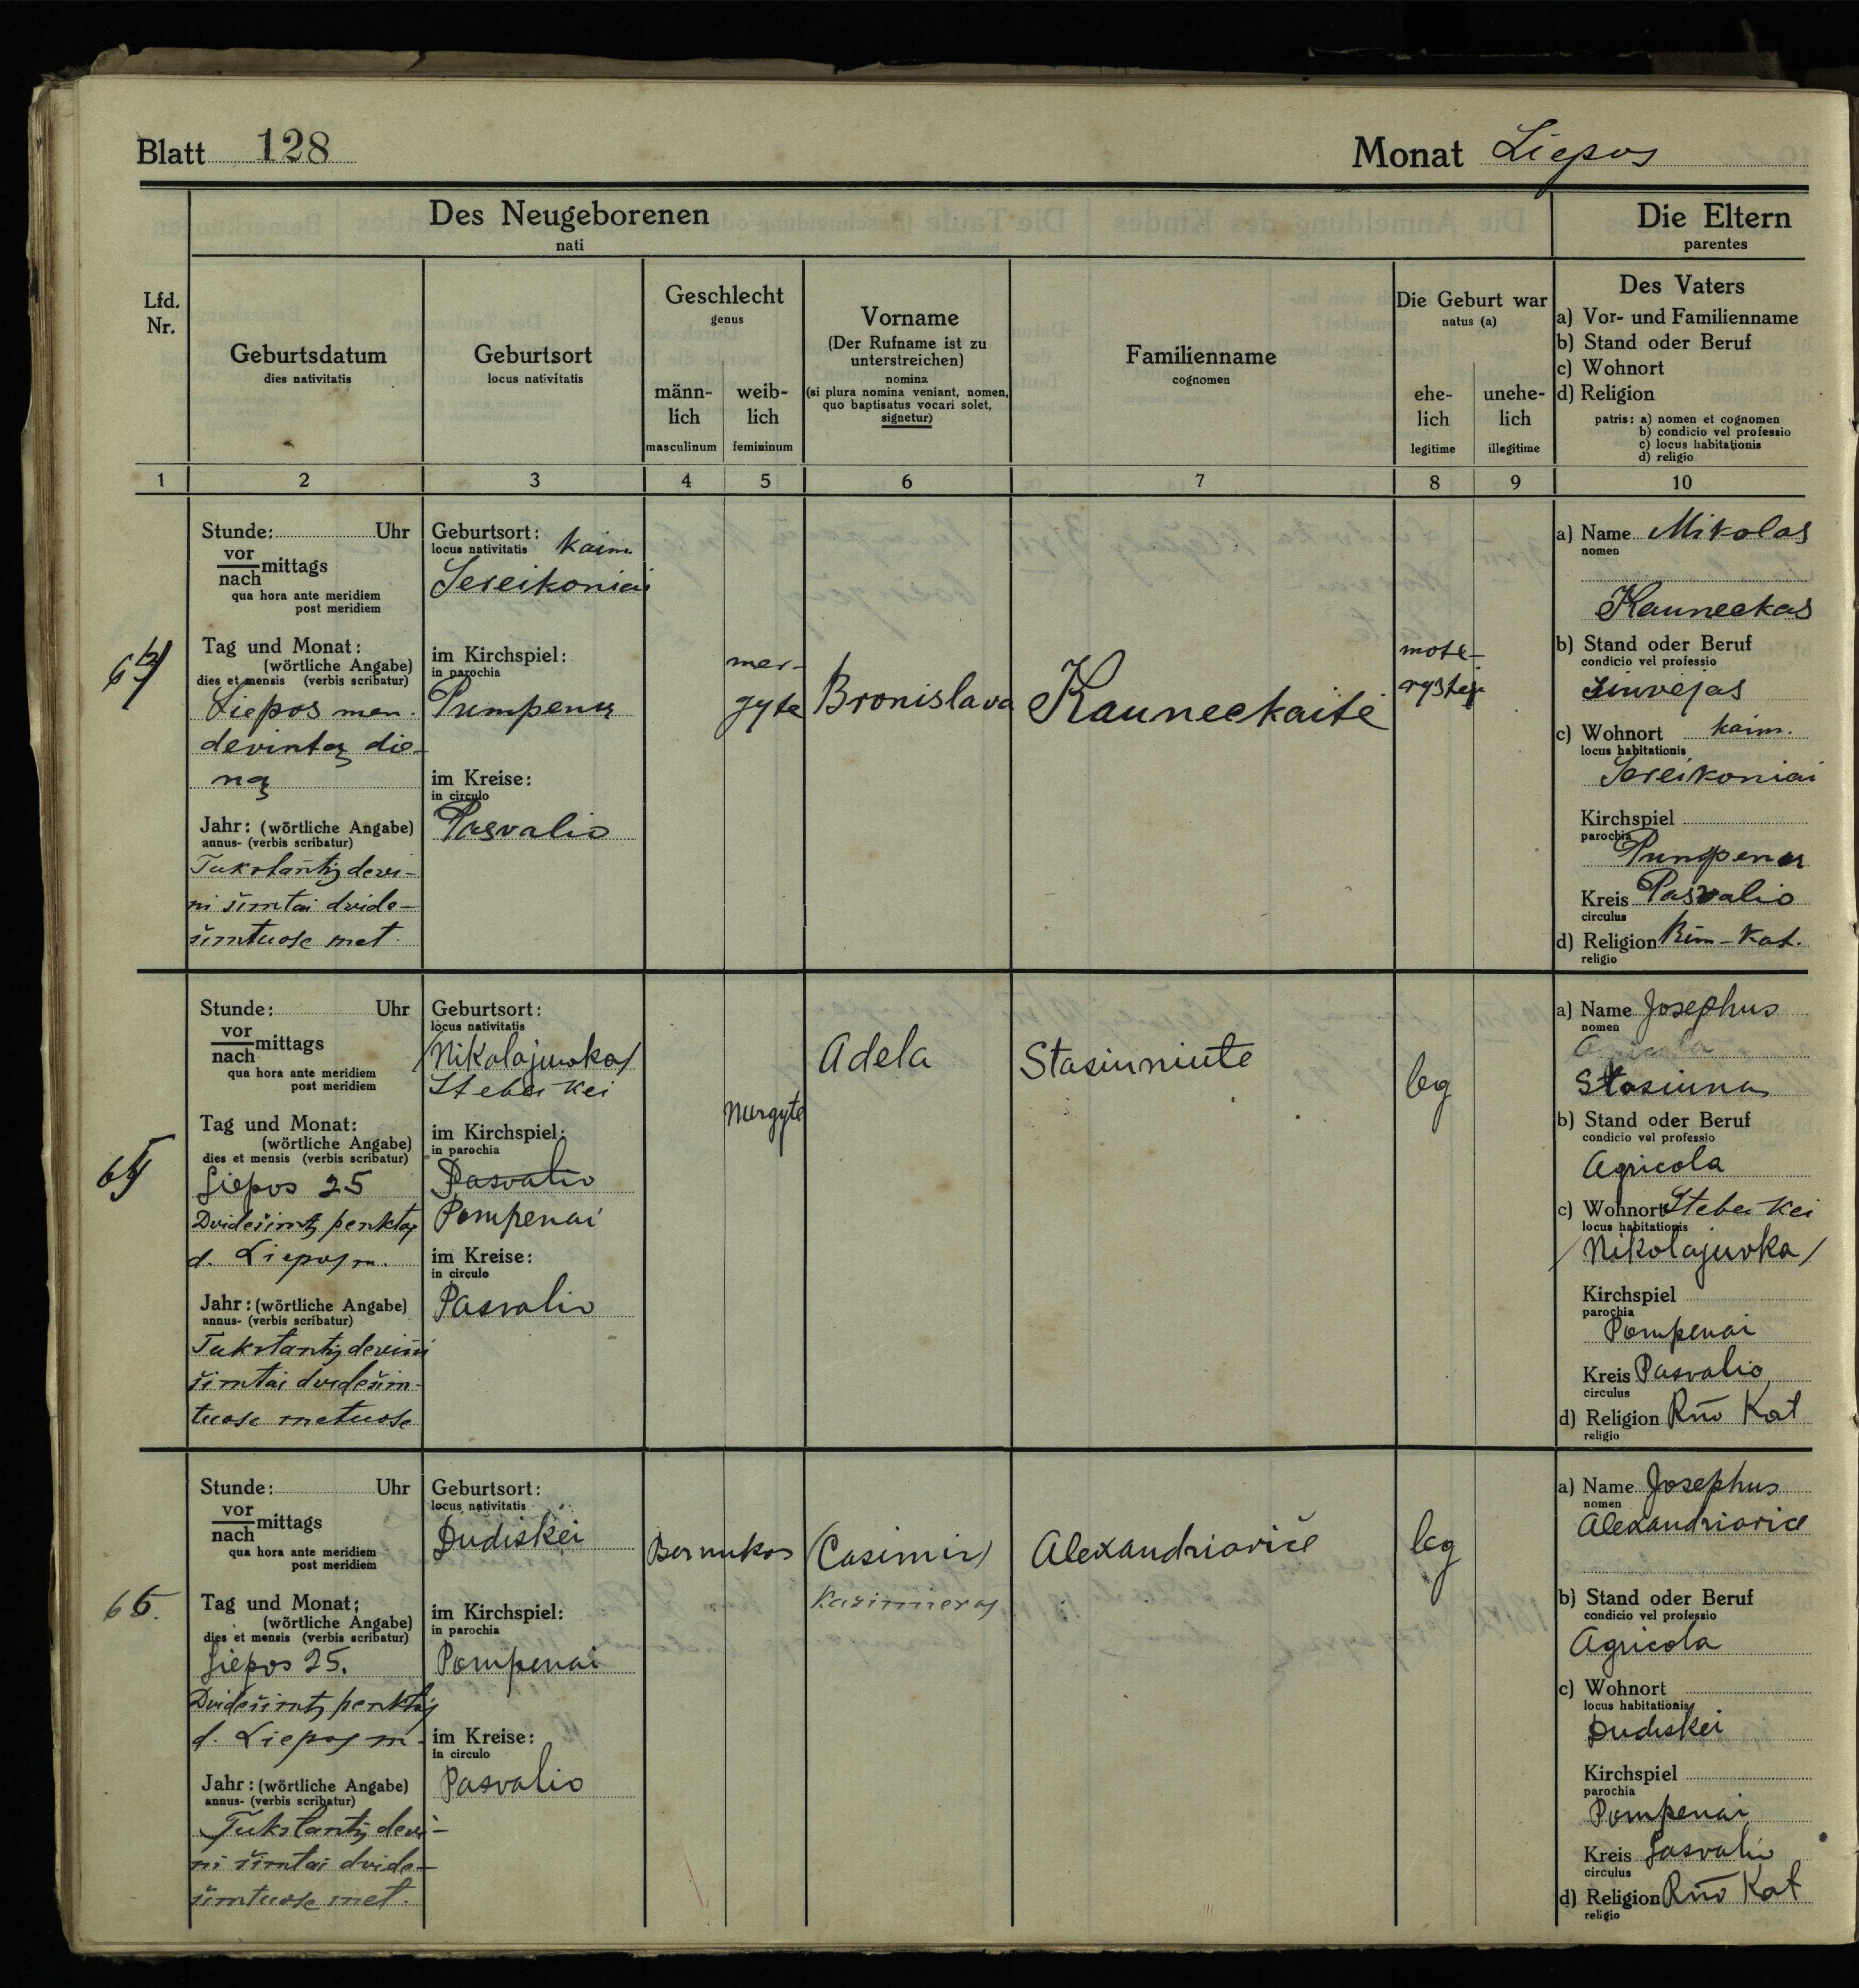 Blatt 128
Monat Liepos
Des Neugeborenen
nati
Die Eltern
parentes
Lfd.
Nr.
Geburtsdatum
dies nativitatis
Geburtsort
locus nativitatis
Geschlecht
genus
männ-
lich
masculinum
weib-
lich
femininum
Vorname
(Der Rufname ist zu
unterstreichen)
nomina
(si plura nomina veniant, nomen,
quo baptisatus vocari solet,
signetur)
Familienname
cognomen
Die Geburt war
natus (a)
ehe-
lich
legitime
unehe-
lich
illegitime
Des Vaters
a) Vor- und Familienname
b) Stand oder Beruf
c) Wohnort
d) Religion
patris: a) nomen et cognomen
b) condicio vel professio
c) locus habitationis
d) religio
1 2 3 4 5 6 7 8 9 10
Stunde: Uhr
vor
nach mittags
qua hora ante meridiem
post meridiem
Tag und Monat:
(wörtliche Angabe)
dies et mensis (verbis scribatur)
Liepos men.
devintą die-
ną
Jahr: (wörtliche Angabe)
annus- (verbis scribatur)
Tukstantis devi-
ni šimtai dvide-
šimtuose met.
Geburtsort:
locus nativitatis kaim.
Sereikoniai
im Kirchspiel:
in parochia
Pumpenų
im Kreise:
in circulo
Pasvalio
mer-
gyte
Bronislava
Kauneckaitė
mote-
rystėj.
a) Name Mikolas
nomen
Kauneckas
b) Stand oder Beruf
condicio vel professio
c) Wohnort kaim.
locus habitationis
Sereikoniai
Kirchspiel
parochia
Pumpenų
Kreis Pasvalio
circulus
d) Religion Rim-Kat.
religio
Stunde: Uhr
vor
nach mittags
qua hora ante meridiem
post meridiem
Tag und Monat:
(wörtliche Angabe)
dies et mensis (verbis scribatur)
Liepos 25
Dvidešimtą penktą
d. Liepos m.
Jahr: (wörtliche Angabe)
annus- (verbis scribatur)
Tukstantis devini
šimtai dvidešim-
tuose metuose
Geburtsort:
locus nativitatis
/Nikolajuwka/
Stebeikei
im Kirchspiel:
in parochia
Pasvalio
Pompenai
im Kreise:
in circulo
Pasvalio
Mergyte
Adela
Stasiuniute
leg
a) Name Josephus
nomen
Agricola
Stasiunas
b) Stand oder Beruf
condicio vel professio
Agricola
c) Wohnort Stebeikei
locus habitationis
/Nikolajuvka/
Kirchspiel
parochia
Pompenai
Kreis Pasvalio
circulus
d) Religion Rmo Kat
religio
65.
Stunde: Uhr
vor
nach mittags
qua hora ante meridiem
post meridiem
Tag und Monat;
(wörtliche Angabe)
dies et mensis (verbis scribatur)
Liepos 25.
Dvidešimtą penktąj
d. Liepos m.
Jahr: (wörtliche Angabe)
annus- (verbis scribatur)
Tukstantis devi-
ni šimtai dvide-
šimtuose met.
Geburtsort:
locus nativitatis
Dudiskei
im Kirchspiel:
in parochia
Pompenai
im Kreise:
in circulo
Pasvalio
Bernukas
(Casimir)
Kazimieras
Alexandrioviče
leg
a) Name Josephus
nomen
Alexandriovice
b) Stand oder Beruf
condicio vel professio
Agricola
c) Wohnort
locus habitationis
Dudiskei
Kirchspiel
parochia
Pompenai
Kreis Pasvalio
circulus
d) Religion Rmo Kat
religio